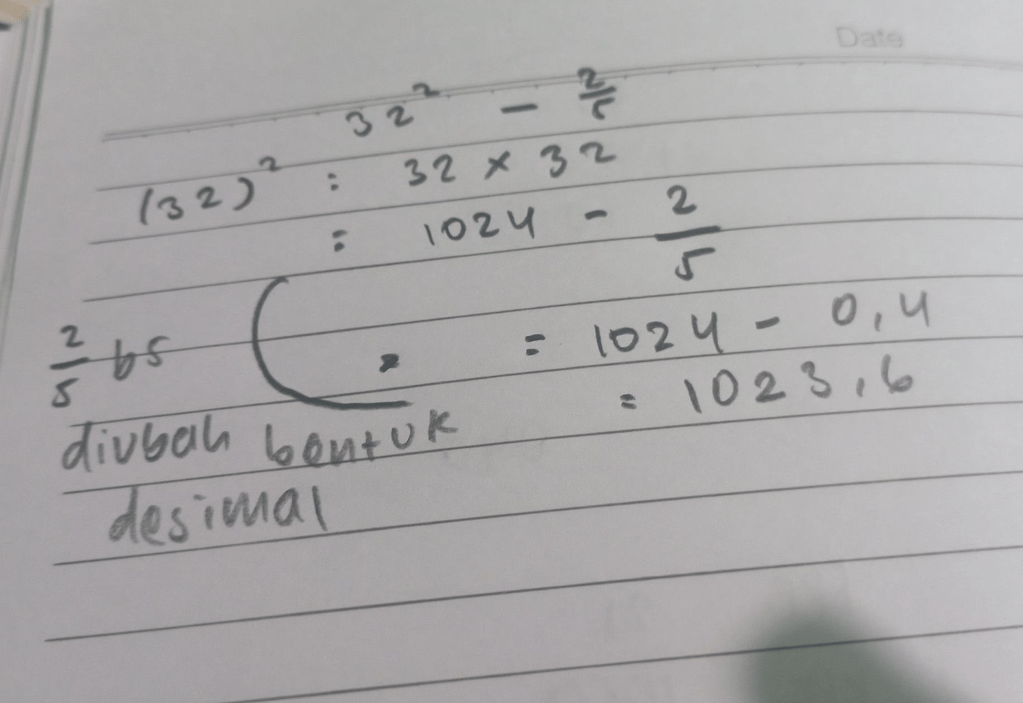 Date
32² - 2/5
(32)² : 32 × 32
: 1024 - 2/5
2/5 bs = 1024 - 0,4
diubah bentuk = 1023,6
desimal